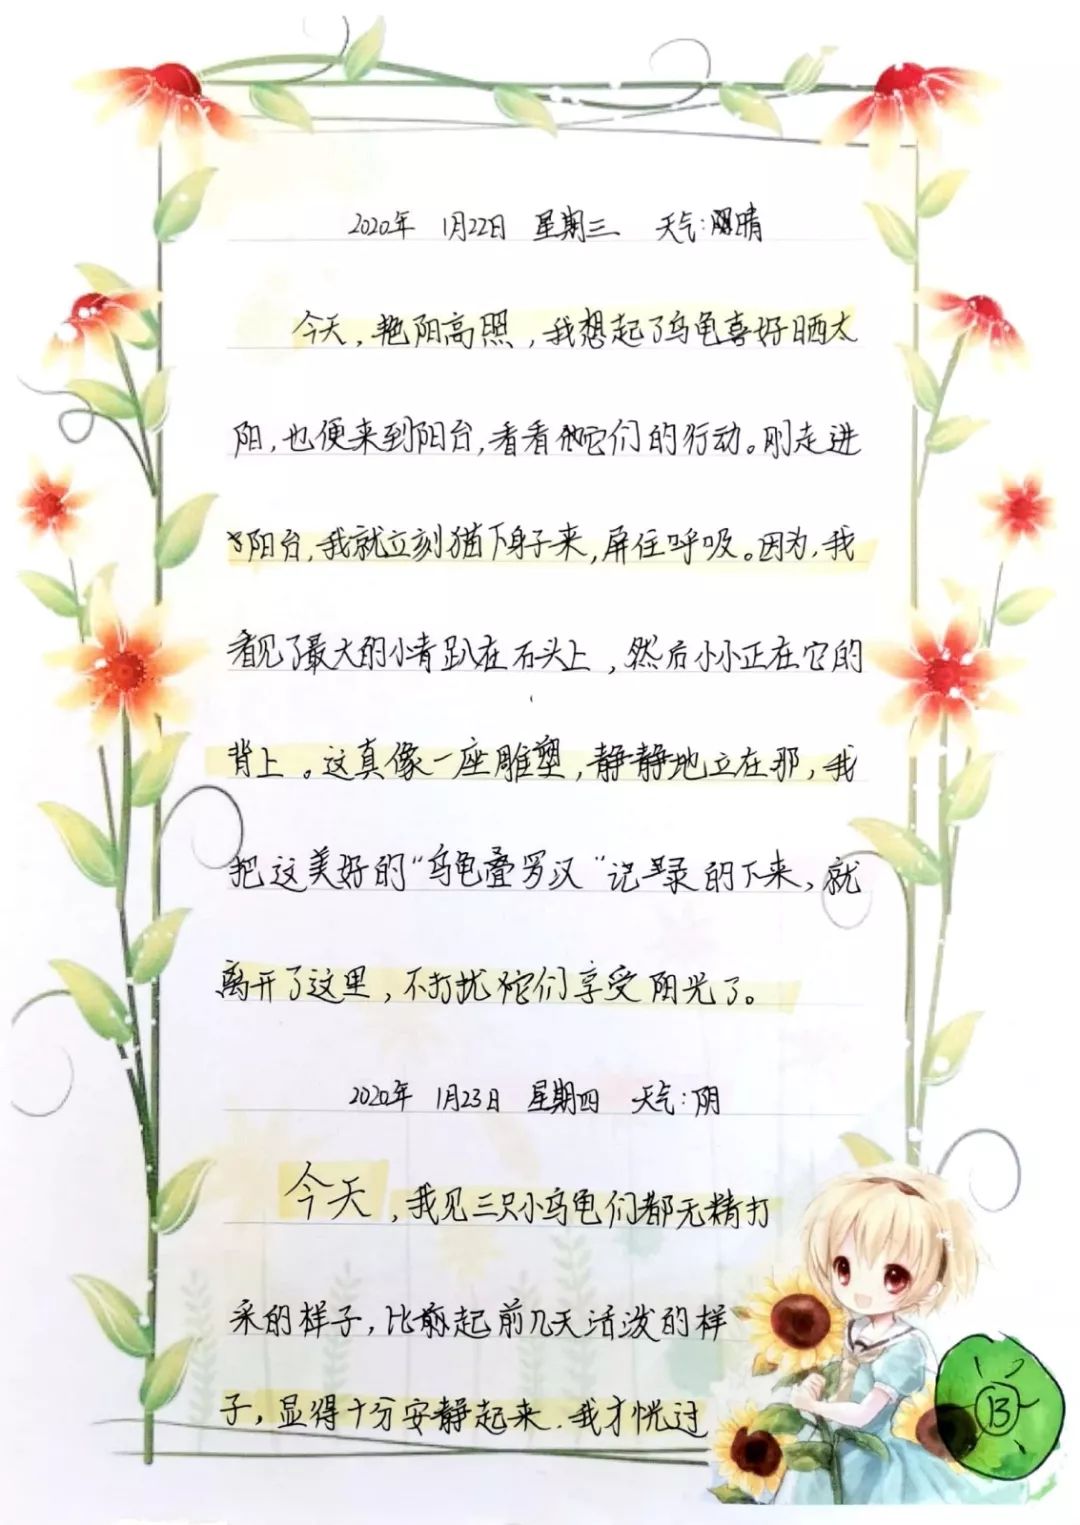 2020年 1月22日 星期三 天气:晴
今天，艳阳高照，我想起了乌龟喜好晒太
阳，也便来到阳台，看看它们的行动。刚走进
阳台，我就立刻猫下身子来，屏住呼吸。因为，我
看见了最大的小青趴在石头上，然后小小正在它的
背上。这真像一座雕塑，静静地立在那，我
把这美好的“乌龟叠罗汉”记录的下来，就
离开了这里，不打扰它们享受阳光了。
2020年 1月23日 星期四 天气:阴
今天，我见三只小乌龟们都无精打
采的样子，比起前几天活泼的样
子，显得十分安静起来.我才恍过
13